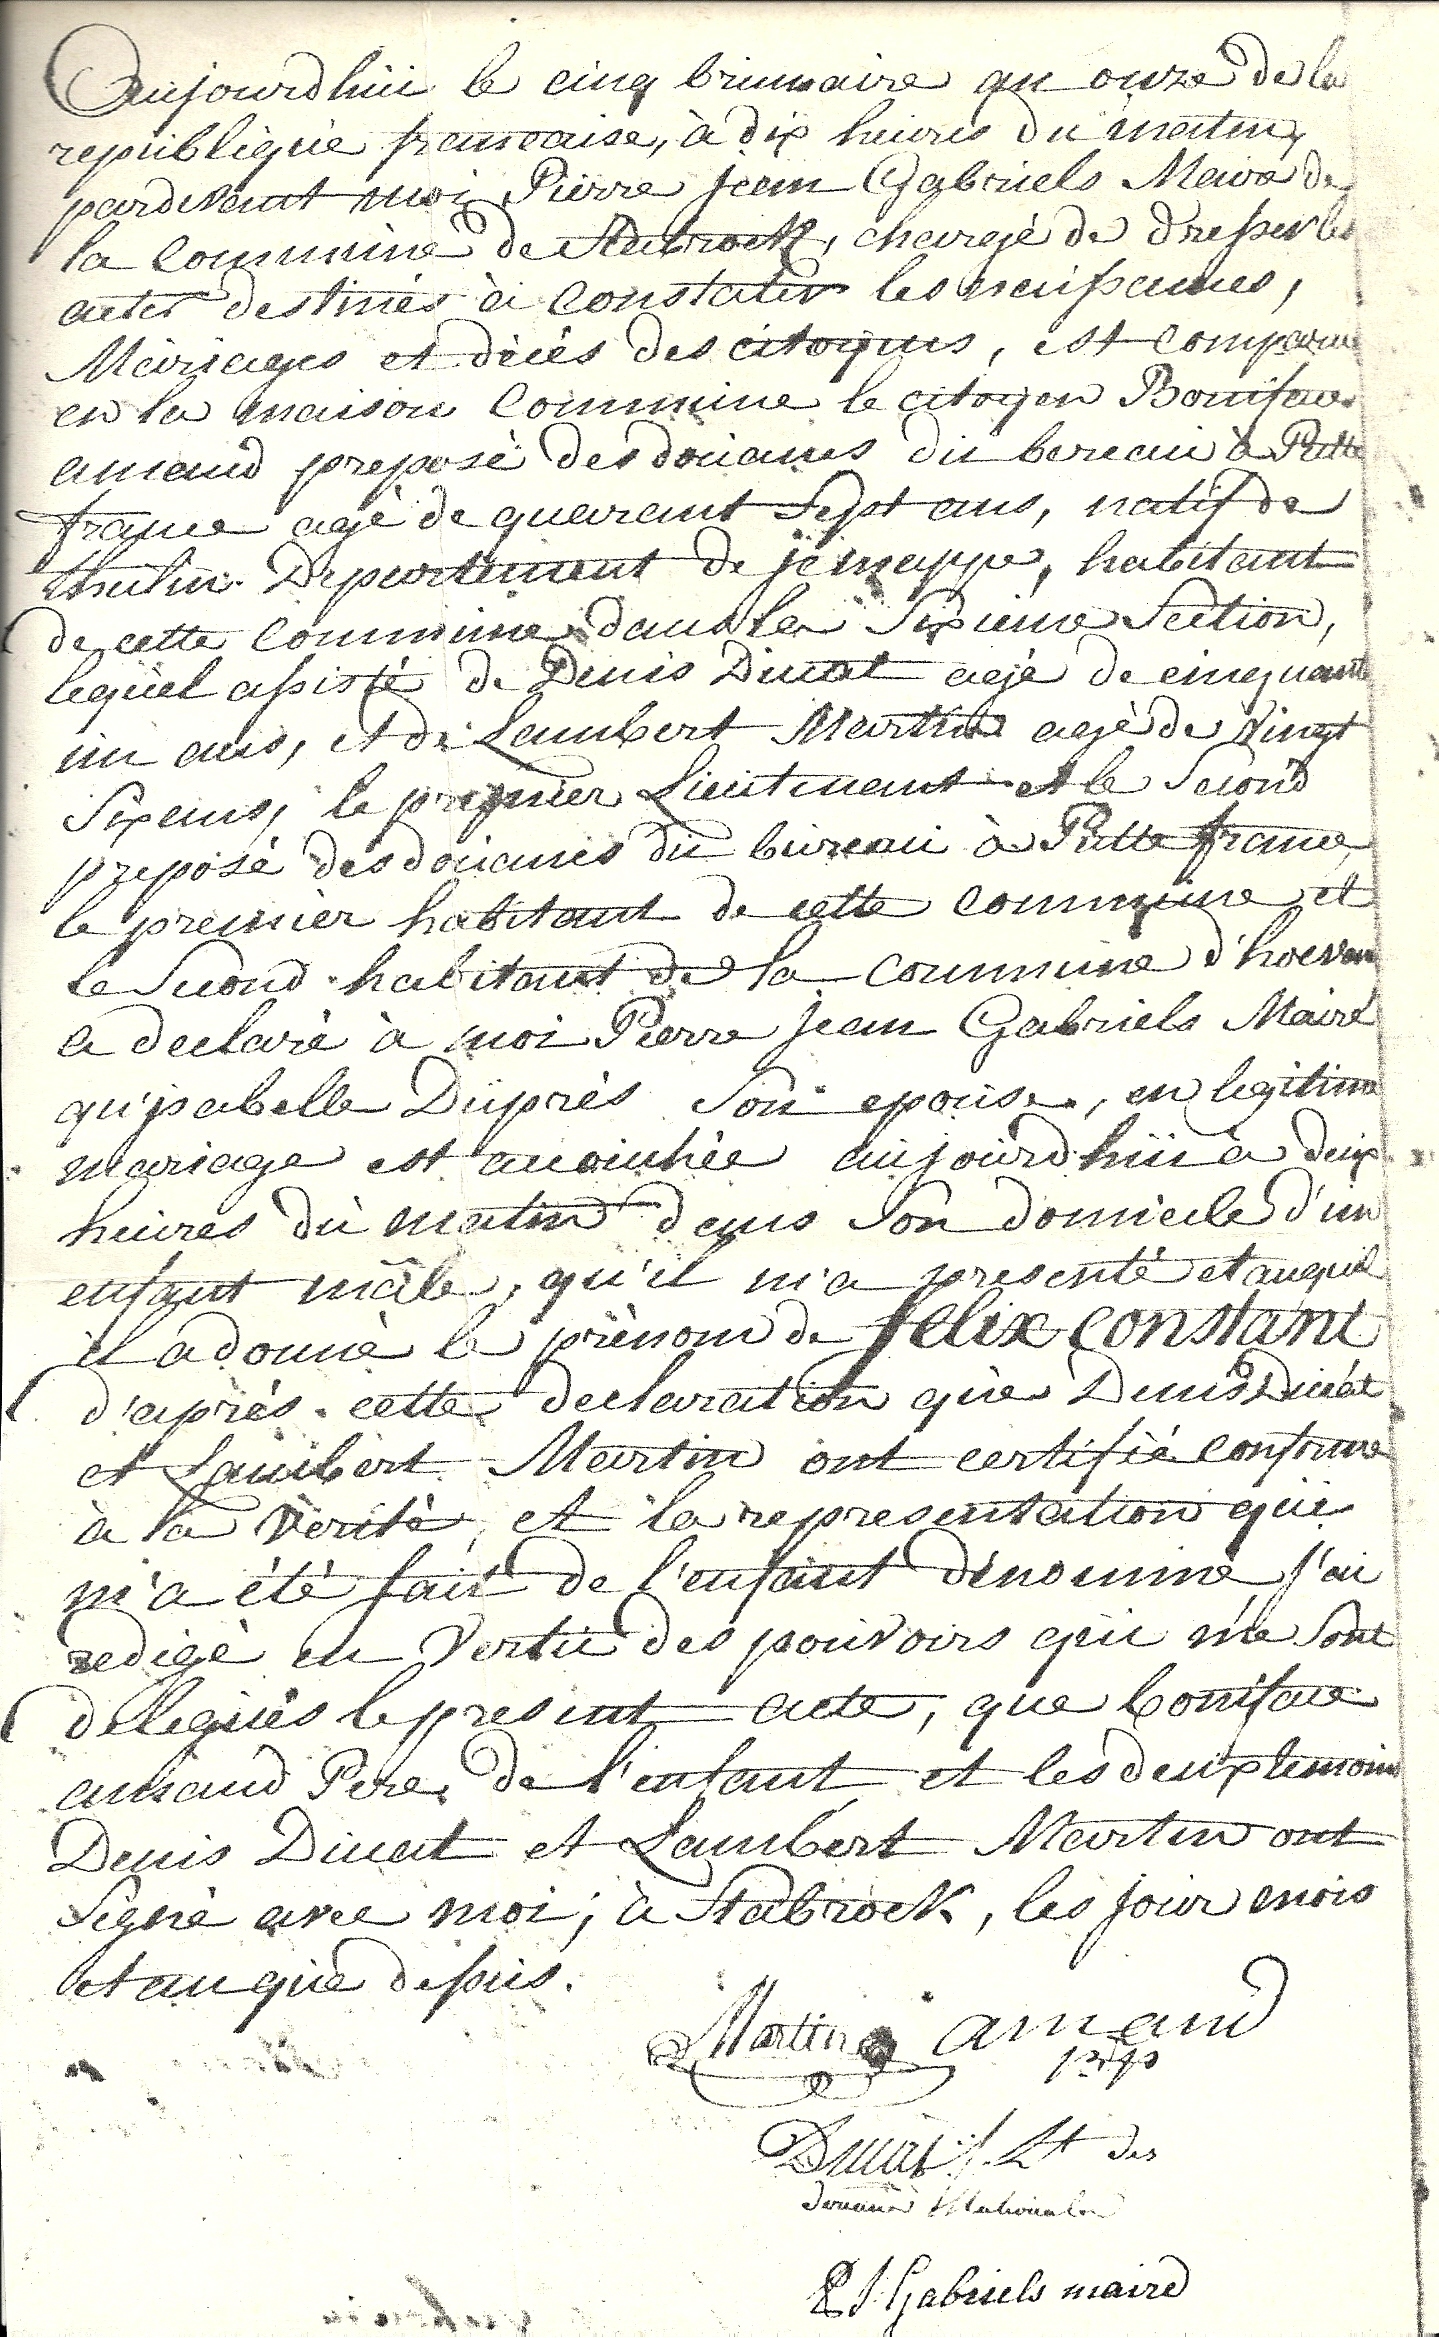 Aujourdhui le cinq brumaire an onze de la
republique francaise, à dix heures du matin,
pardevant moi Pierre jean Gabriels Maire de
la Commune de Stabroek, chargé de dresser les
actes destinés à Constater les naissances,
Mariages et décés des citoyens, est comparu
en la maison Commune le citoyen Boniface
amand preposé des douanes du bureau à Putte
france agé de quarant Sept ans, natif de
thulin Departement de jemappe, habitant
de cette Commune dans la Sixieme Section,
lequel assisté de Denis Ducat agé de cinquant
un ans, et de Lambert Martin agé de Vingt
Six ans, le premier Lieutenant et le Second
preposé des douanes du bureau à Putte france,
le premier habitant de cette Commune et
le Second habitant de la Commune d'hoeven
a declaré à moi Pierre jean Gabriels Maire
qu'isabelle Duprés Son epouse, en legitime
mariage est accouchée aujourd'hui a deux
heures du matin dans Son domicile d'un
enfant mâle, qu'il m'a presenté et auquel
il a donné le prénom de felix Constant
d'aprés cette declaration que Denis Ducat
et Lambert Martin ont certifié conforme
à la Verité, et la representation qui
m'a été fait de l'enfant dénommé, j'ai
redigé en Vertu des pouvoirs qui me Sont
delegués le present acte, que boniface
amand Pere de l'enfant et les deux temoins
Denis Ducat et Lambert Martin ont
Signé avec moi; à Stabroek, les jour mois
et an que dessus.
Martin amand
Ducat Lt des
douanes Nationales
P J Gabriels maire